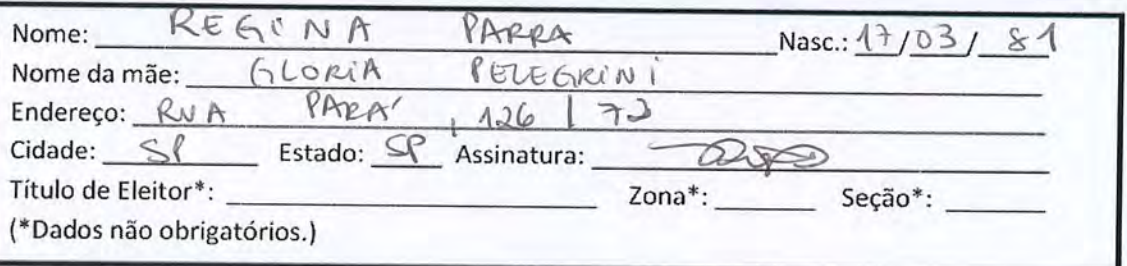 Nome: REGINA PARRA Nasc.: 17/03/81
Nome da mãe: GLORIA PELEGRINI
Endereço: RUA PARÁ, 126 | 72
Cidade: SP Estado: SP Assinatura:
Título de Eleitor*: Zona*: Seção*:
(*Dados não obrigatórios.)